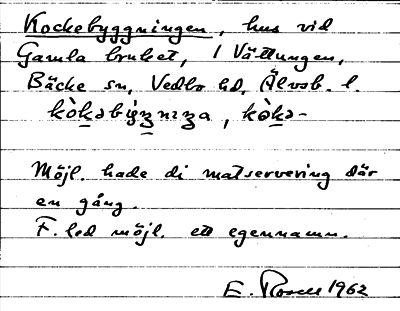 Kockebyggningen, hus vid
Gamla bruket, 1 Vättungen,
Bäcke sn, Vedbo hd, Älvsb. l.
kòkəbỳgnıŋa, kòkə-
Möjl. hade di matservering där
en gång.
F. led möjl. ett egennamn.
E. 1962